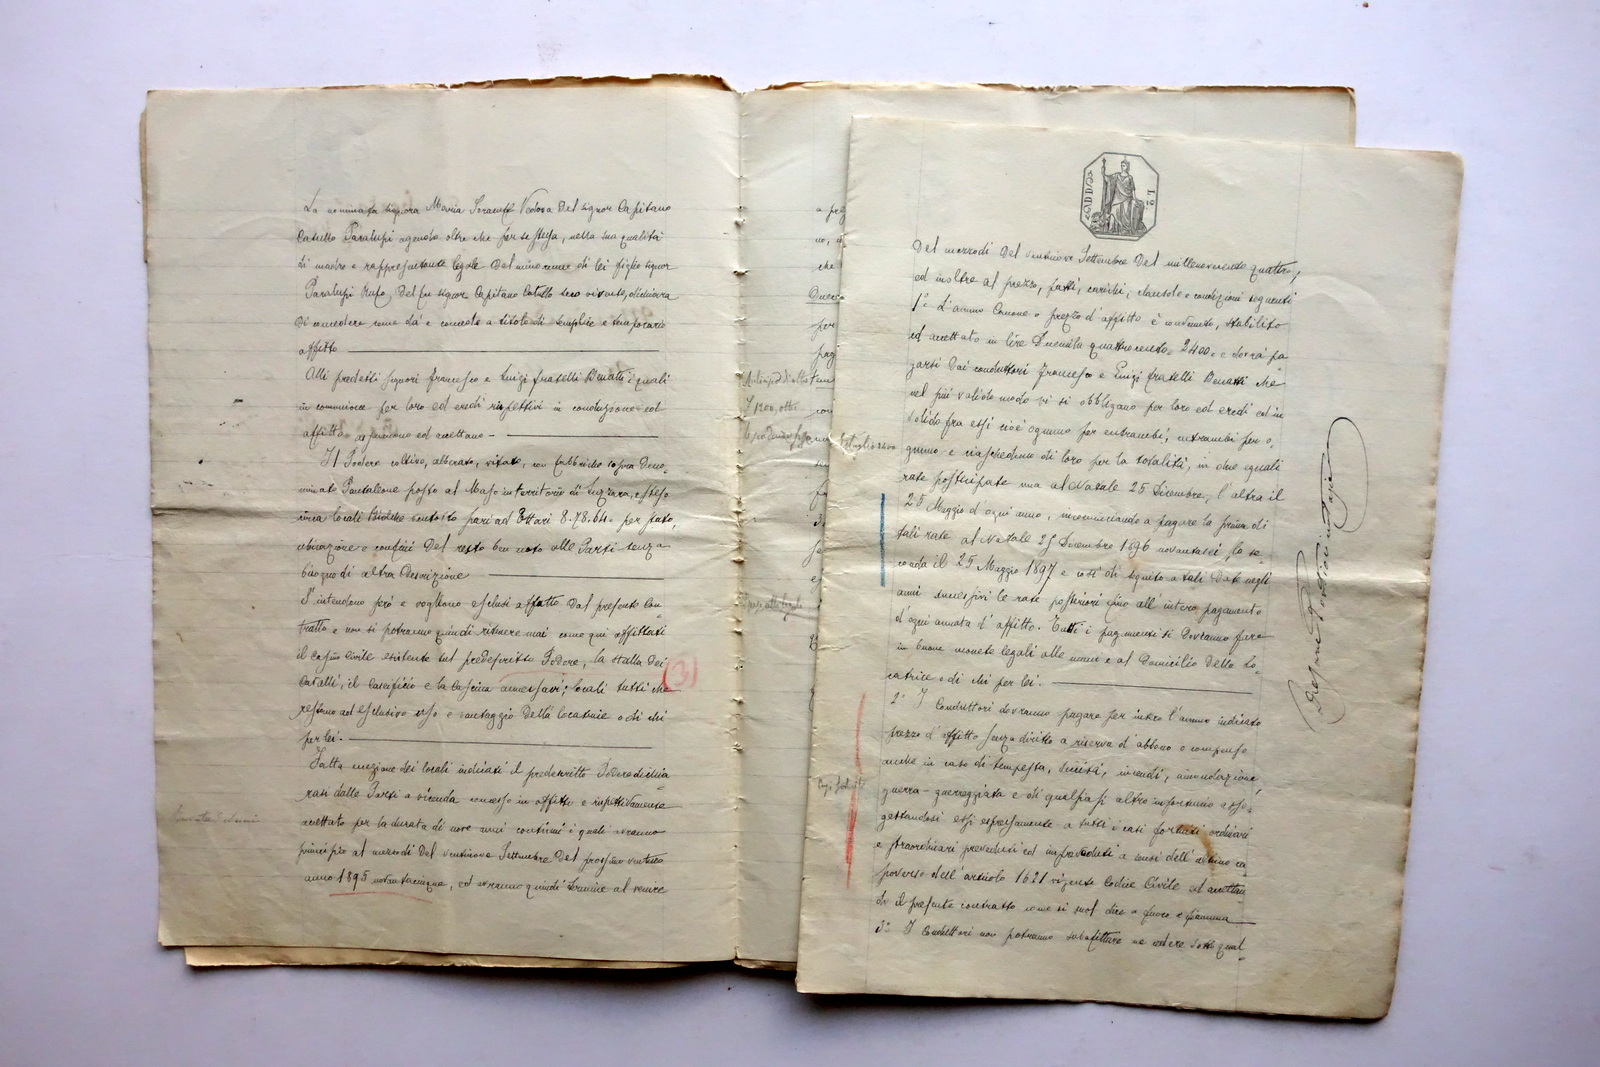 La nominata signora Maria Vedova del signor Capitano
Catullo Paralupi agendo oltre che per se stessa, nella sua qualità
di madre e rappresentante legale del minorenne di lei figlio signor
Paralupi Rufo, del fu signor Capitano Catullo seco vivente, dichiara
di concedere come dà e concede a titolo di semplice e temporario
affitto
Alli predetti signori Francesco e Luigi fratelli Benatti i quali
in commune per loro ed eredi rispettivi in conduzione ed
affitto assumono ed accettano -
Il Podere coltivo, alberato, vitato, con fabbriche sopra deno-
minato Pantaleone posto al Maso in territorio di Luzzara, esteso
circa locali Biolche ventotto pari ad Ettari 8.78.64. per stato,
ubicazione e confini del resto ben noto alle Parti senza
bisogno di altra descrizione
S'intendono però e vogliono esclusi affatto dal presente Con-
tratto e non si potranno quindi ritenere mai come qui affittati
il casino Civile esistente sul predescritto Podere, la stalla dei
Cavalli, il Caseificio e la Cascina annessavi; locali tutti che
(3)
restano ad esclusivo uso e vantaggio della locatrice o di chi
per lei.
Fatta eccezione dei locali indicati il predescritto Podere dichia
rasi dalle Parti a vicenda concesso in affitto e rispettivamente
accettato per la durata di nove anni continui i quali avranno
principio al mezzodì del ventinove Settembre del prossimo venturo
anno 1895 novantacinque, ed avranno quindi termine al venire
a pre
no, a
che
Durra
per
pagi
L 1200, oltre
L
del mezzodì del ventinove Settembre del millenovecento quattro,
ed inoltre al prezzo, patti, carichi, clausole e condizioni seguenti
1º L'annuo Canone o prezzo d'affitto è convenuto, stabilito
ed accettato in lire Duemila quattrocento 2400 e dovrà pa
garsi dai conduttori Francesco e Luigi fratelli Benatti che
nel più valido modo vi si obbligano per loro ed eredi ed in
solido fra essi cioè ognuno per entrambi, entrambi per o-
gnuno e ciascheduno di loro per la totalità, in due eguali
rate posticipate una al Natale 25 Dicembre, l'altra il
25 Maggio d'ogni anno, incominciando a pagare la prima di
tali rate al Natale 25 Dicembre 1896 novantasei, la se-
conda il 25 Maggio 1897 e così di seguito a tali date negli
anni successivi le rate posteriori fino all'intero pagamento
d'ogni annata d'affitto. Tutti i pagamenti si dovranno fare
in buone monete legali alle mani e al domicilio della Lo-
catrice o di chi per lei.
2º I Conduttori dovranno pagare per intero l'annuo indicato
prezzo d'affitto senza diritto a riserva d'abbono e compenso
anche in caso di tempesta, siccità, incendi, innondazione,
guerra - guerreggiata e di qualsiasi altro infortunio asso-
gettandosi essi espressamente a tutti i casi fortuiti ordinari
e straordinari preveduti ed impreveduti a sensi dell'ultimo ca
poverso dell'articolo 1621 vigente Codice Civile ed accettan
do il presente contratto come si suol dire a fuoco e fiamma
3º I Conduttori non potranno subaffittare ne cedere sotto qual